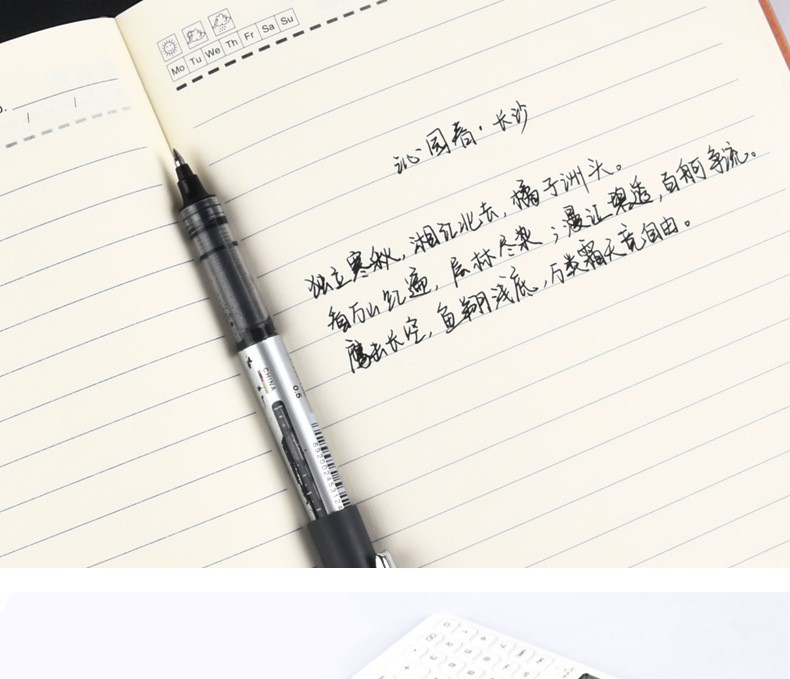 Mo Tu We Th Fr Sa Su
沁园春·长沙
独立寒秋,湘江北去,橘子洲头。
看万山红遍,层林尽染;漫江碧透,百舸争流。
鹰击长空,鱼翔浅底,万类霜天竞自由。
CHINA
0.5